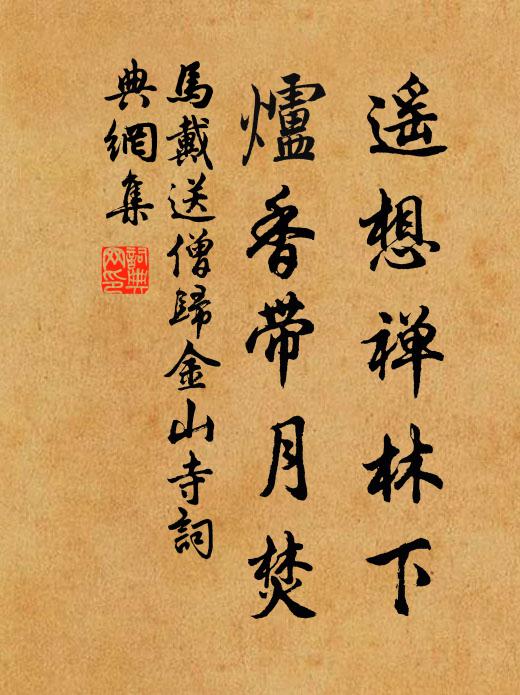 遥想禅林下
爐香带月焚
馬戴送僧歸金山寺詞
典網集
詞典網印